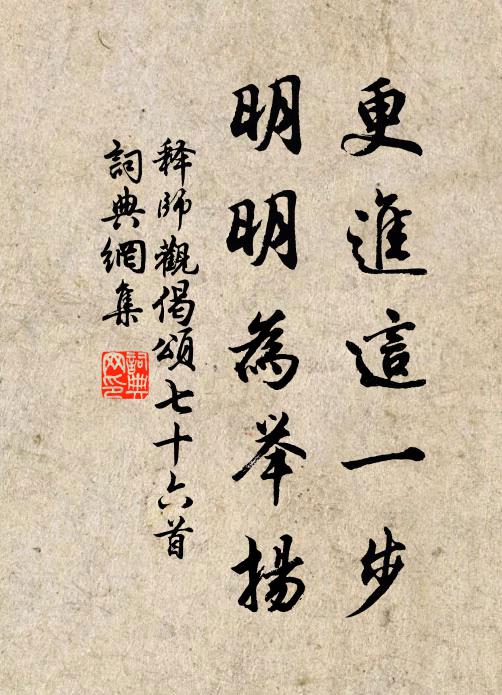 更進這一步
明明為举揚
釋師觀偈頌七十六首
詞典網集
詞典
网印